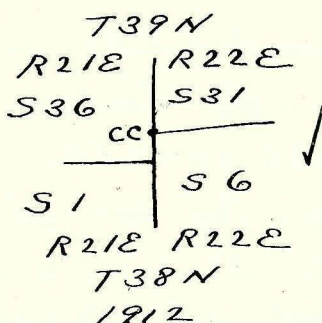 T39N
R21E R22E
S36 S31
CC
S1 S6
R21E R22E
T38N
1912